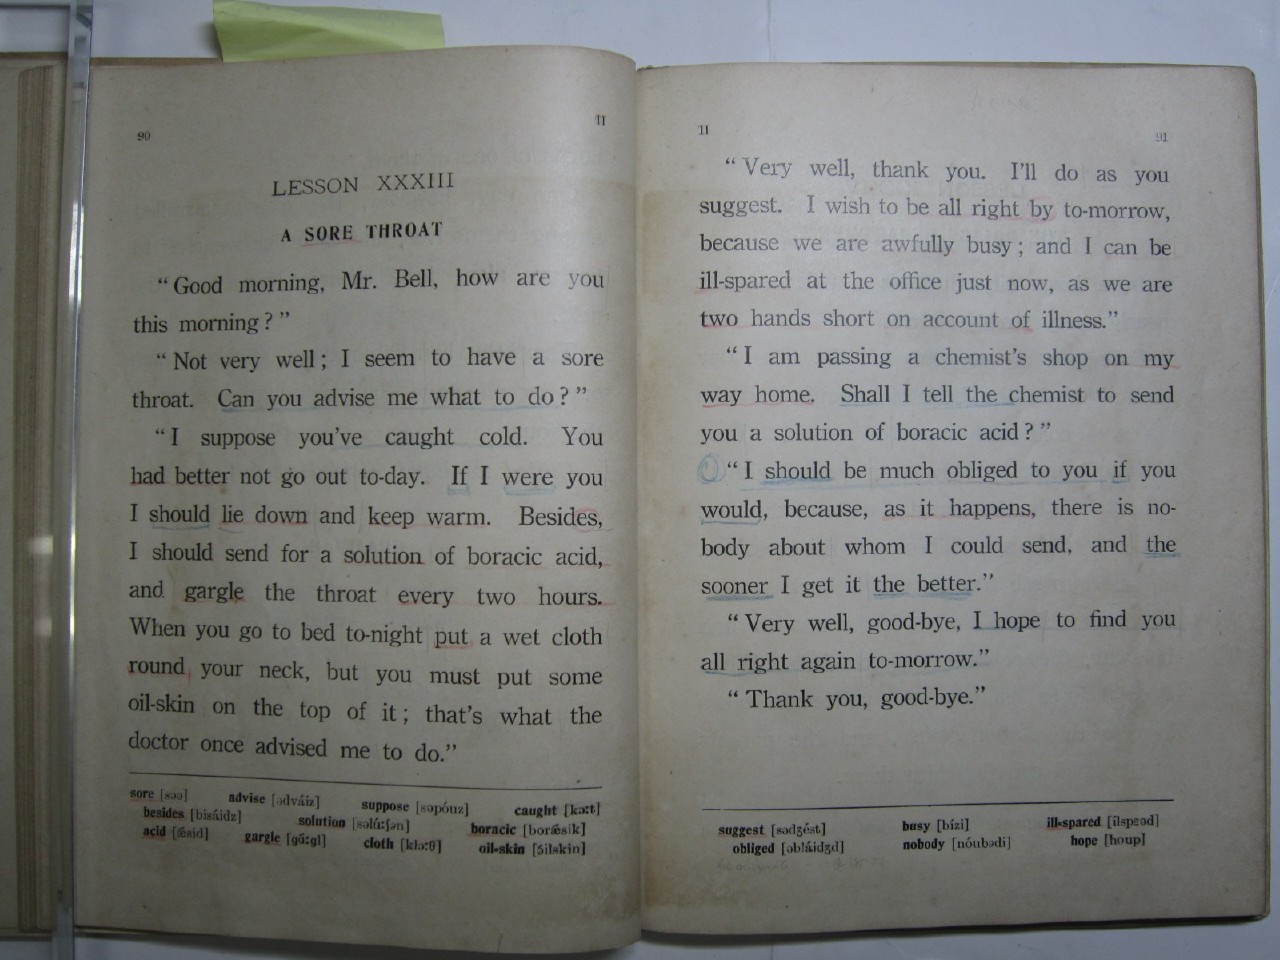 90
II
LESSON XXXIII
A SORE THROAT
“Good morning, Mr. Bell, how are you
this morning?”
“Not very well; I seem to have a sore
throat. Can you advise me what to do?”
“I suppose you’ve caught cold. You
had better not go out to-day. If I were you
I should lie down and keep warm. Besides,
I should send for a solution of boracic acid,
and gargle the throat every two hours.
When you go to bed to-night put a wet cloth
round your neck, but you must put some
oil-skin on the top of it; that’s what the
doctor once advised me to do.”
sore [sɔə] advise [ədváiz] suppose [səpóuz] caught [kɔːt]
besides [bisáidz] solution [səlúːʃən] boracic [borǽsik]
acid [ǽsid] gargle [gɑ́ːgl] cloth [klɔːθ] oil-skin [ɔ́ilskin]
II
91
“Very well, thank you. I’ll do as you
suggest. I wish to be all right by to-morrow,
because we are awfully busy; and I can be
ill-spared at the office just now, as we are
two hands short on account of illness.”
“I am passing a chemist’s shop on my
way home. Shall I tell the chemist to send
you a solution of boracic acid?”
“I should be much obliged to you if you
would, because, as it happens, there is no-
body about whom I could send, and the
sooner I get it the better.”
“Very well, good-bye, I hope to find you
all right again to-morrow.”
“Thank you, good-bye.”
suggest [sədʒést] busy [bízi] ill-spared [ílspɛəd]
obliged [əbláidʒd] nobody [nóubədi] hope [houp]